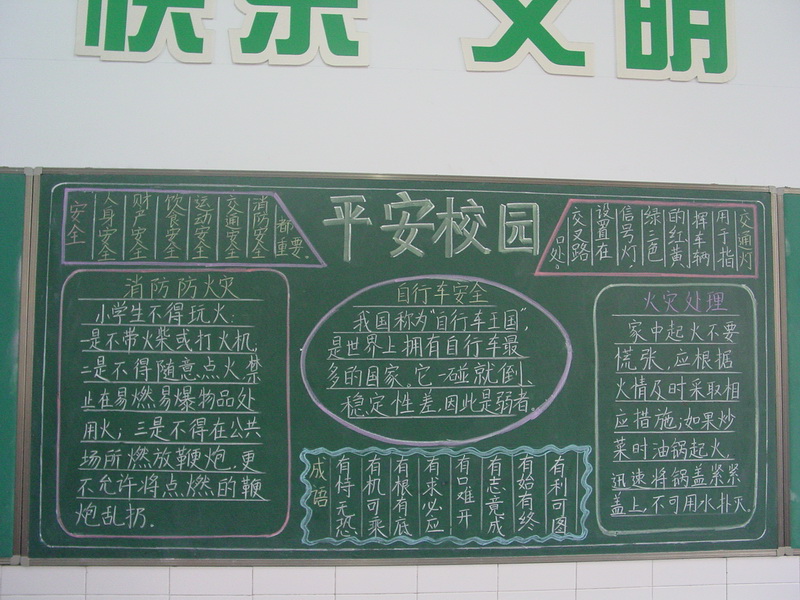 快乐 文明
安全
人身安全
财产安全
饮食安全
运动安全
交通安全
消防安全
都重要。
平安校园
交通灯
用于指
挥车辆
的红黄
绿三色
信号灯,
设置在
交叉路
口处。
消防防火灾
小学生不得玩火:
一是不带火柴或打火机,
二是不得随意点火,禁
止在易燃易爆物品处
用火;三是不得在公共
场所燃放鞭炮,更
不允许将点燃的鞭
炮乱扔.
自行车安全
我国称为"自行车王国",
是世界上拥有自行车最
多的国家。它一碰就倒、
稳定性差,因此是弱者。
火灾处理
家中起火不要
慌张,应根据
火情及时采取相
应措施;如果炒
菜时油锅起火,
迅速将锅盖紧紧
盖上,不可用水扑灭.
成语
有恃无恐
有机可乘
有根有底
有求必应
有口难开
有志竟成
有始有终
有利可图